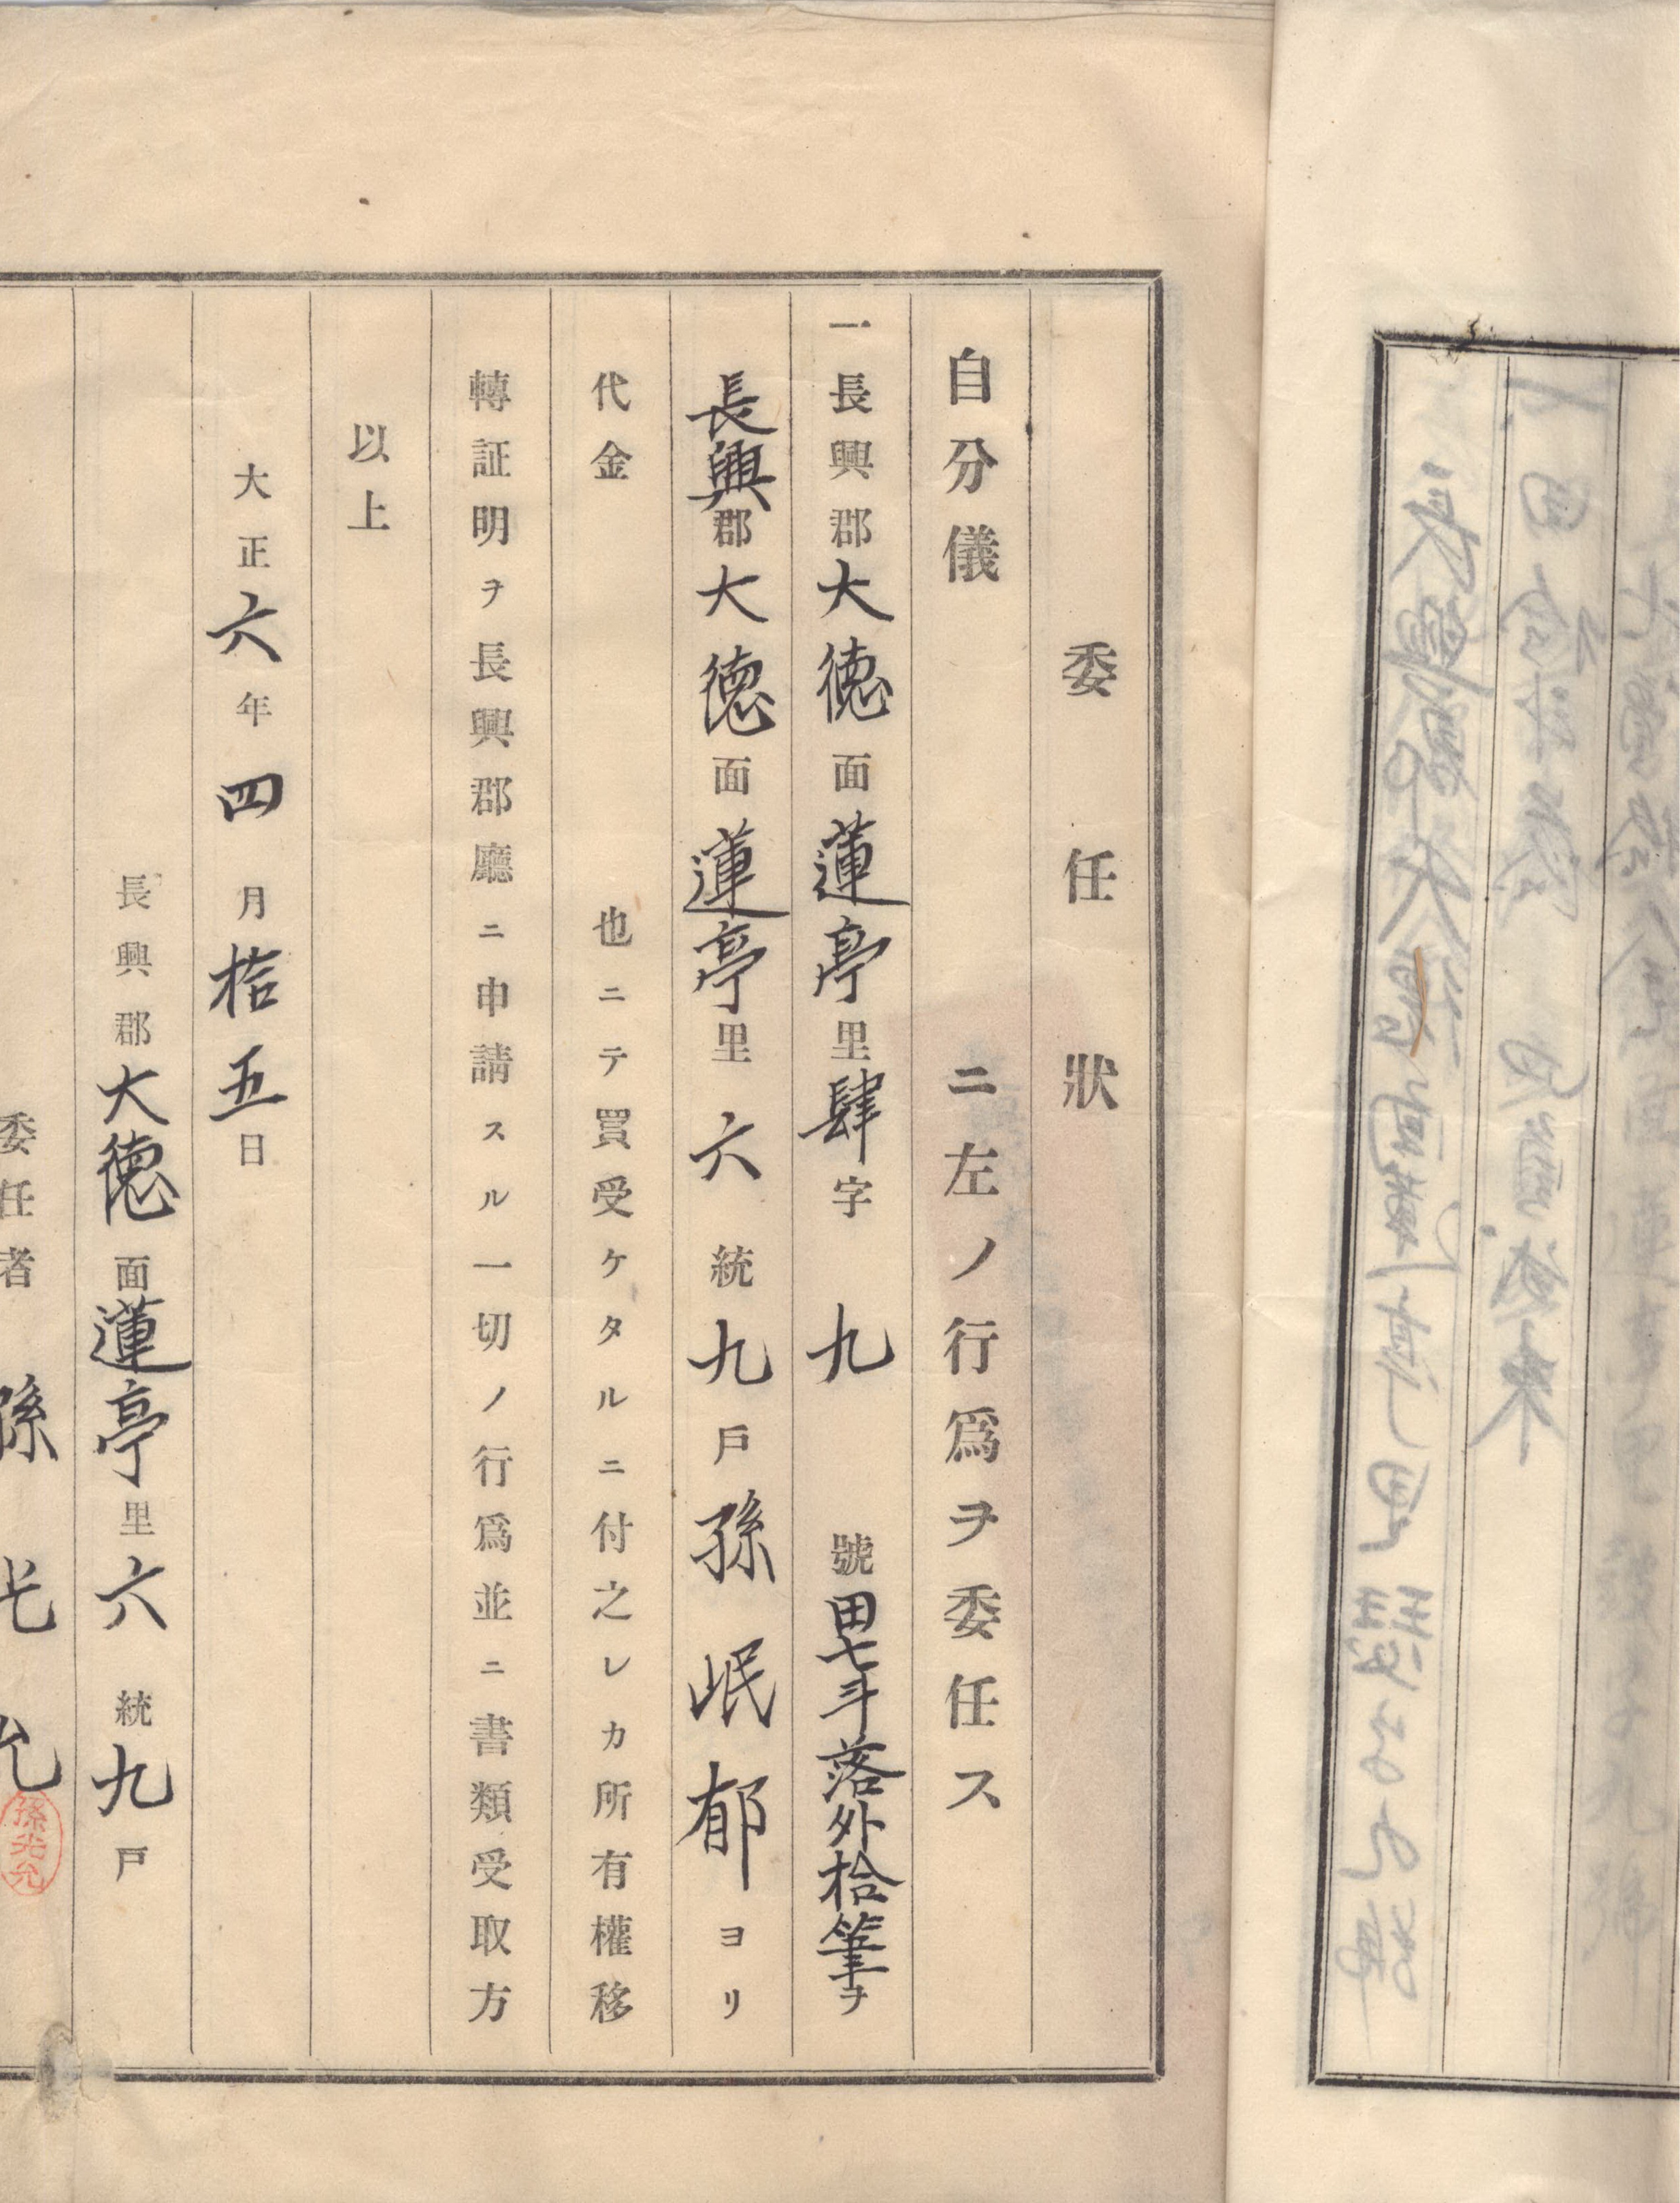 委任狀
自分儀 ニ左ノ行爲ヲ委任ス
一長興郡大德面蓮亭里肆字九號田七斗落外拾筆ヲ
長興郡大德面蓮亭里六統九戶孫岷郁ヨリ
代金 也ニテ買受ケタルニ付之レカ所有權移
轉証明ヲ長興郡廳ニ申請スル一切ノ行爲並ニ書類受取方
以上
大正六年四月拾五日
長興郡大德面蓮亭里六統九戶
委任者 孫光允
孫光允